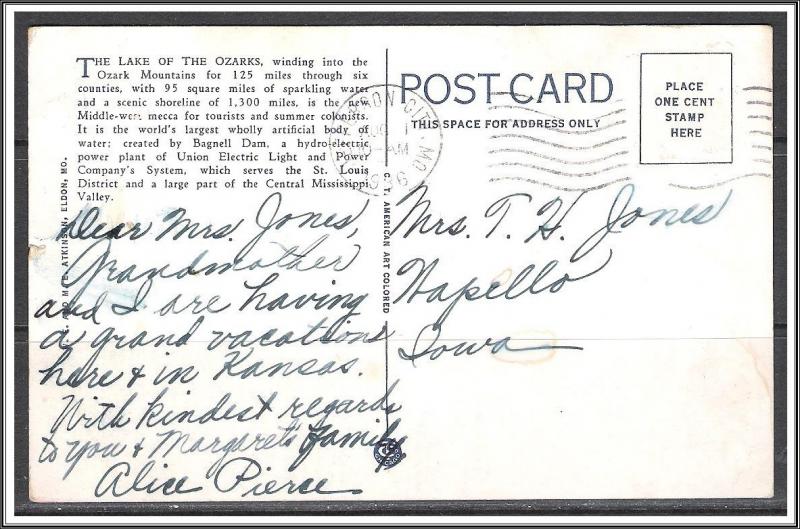 THE LAKE OF THE OZARKS, winding into the
Ozark Mountains for 125 miles through six
counties, with 95 square miles of sparkling water
and a scenic shoreline of 1,300 miles, is the new
Middle-west mecca for tourists and summer colonists.
It is the world's largest wholly artificial body of
water; created by Bagnell Dam, a hydro-electric
power plant of Union Electric Light and Power
Company's System, which serves the St. Louis
District and a large part of the Central Mississippi
Valley.
Dear Mrs. Jones,
Grandmother
and I are having
a grand vacation
here & in Kansas.
With kindest regards
to you & Margaret's family,
Alice Pierce
ATKINSON, ELDON, MO.
C. T. AMERICAN ART COLORED
POST CARD
THIS SPACE FOR ADDRESS ONLY
CITY
MO.
AM
1936
PLACE
ONE CENT
STAMP
HERE
Mrs. T. H. Jones
Wapello
Iowa